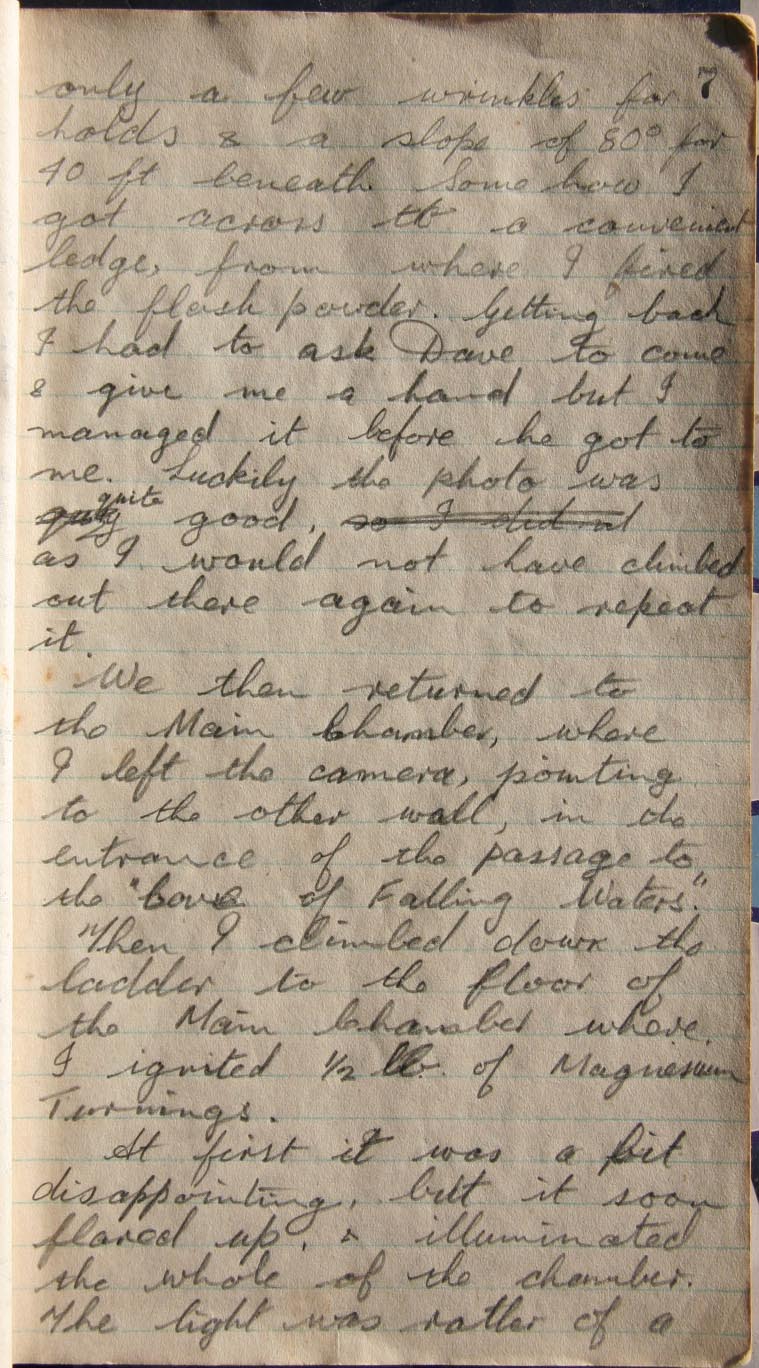 7
only a few wrinkles for
holds & a slope of 80° for
40 ft beneath. Some how I
got across to a convenient
ledge, from where I fired
the flash powder. Getting back
I had to ask Dave to come
& give me a hand but I
managed it before he got to
me. Luckily the photo was
quite
good, so I did nt
as I would not have climbed
out there again to repeat
it.
We then returned to
the Main Chamber, where
I left the camera, pointing
to the other wall, in the
entrance of the passage to
the "Cave of Falling Waters."
Then I climbed down the
ladder to the floor of
the Main Chamber where.
I ignited ½ lb. of Magnesium
Turnings.
At first it was a bit
disappointing, but it soon
flared up, & illuminated
the whole of the chamber.
The light was rather of a